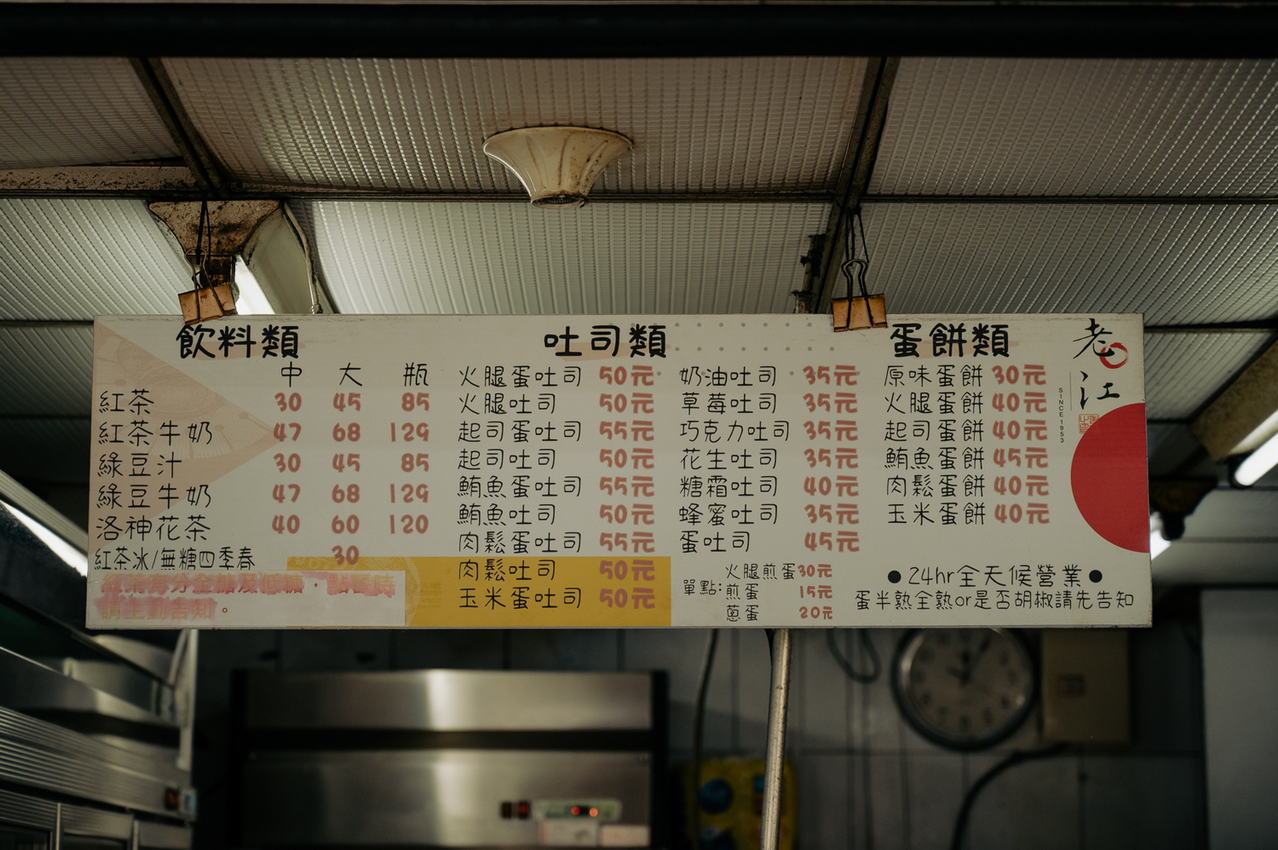 飲料類
中 大 瓶
紅茶 30 45 85
紅茶牛奶 47 68 129
綠豆汁 30 45 85
綠豆牛奶 47 68 129
洛神花茶 40 60 120
紅茶冰/無糖四季春 30
吐司類
火腿蛋吐司 50元
火腿吐司 50元
起司蛋吐司 55元
起司吐司 50元
鮪魚蛋吐司 55元
鮪魚吐司 50元
肉鬆蛋吐司 55元
肉鬆吐司 50元
玉米蛋吐司 50元
奶油吐司 35元
草莓吐司 35元
巧克力吐司 35元
花生吐司 35元
糖霜吐司 40元
蜂蜜吐司 35元
蛋吐司 45元
單點:
火腿煎蛋 30元
煎蛋 15元
蔥蛋 20元
蛋餅類
原味蛋餅 30元
火腿蛋餅 40元
起司蛋餅 40元
鮪魚蛋餅 45元
肉鬆蛋餅 40元
玉米蛋餅 40元
●24hr全天候營業●
蛋半熟全熟or是否胡椒請先告知
老江
SINCE 1953